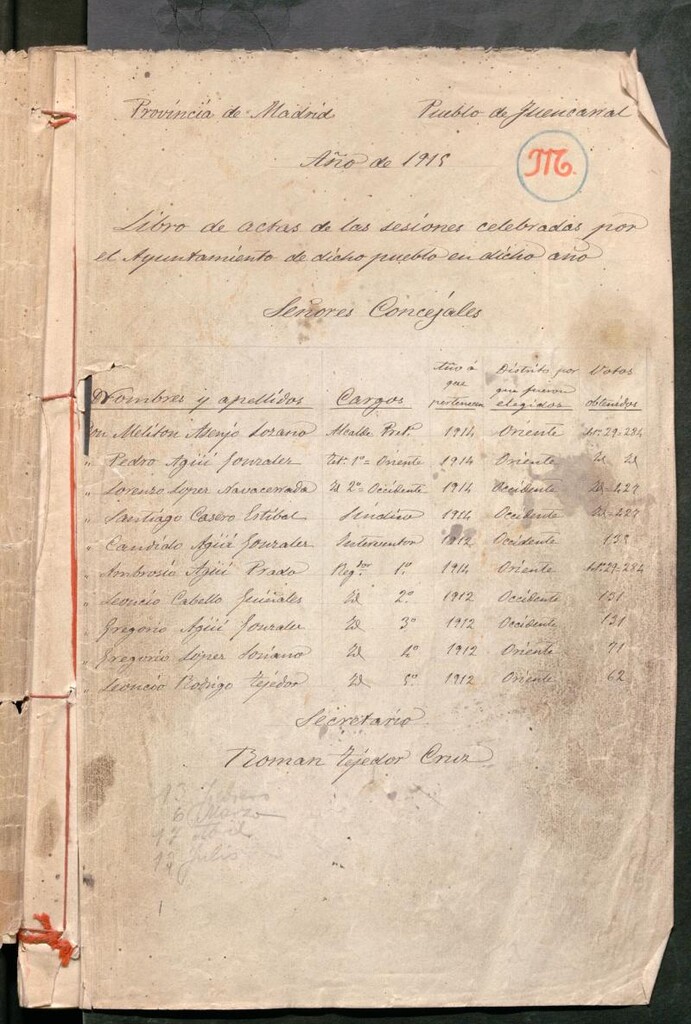 Provincia de Madrid Pueblo de Fuencarral
Año de 1915
M.
Libro de actas de las sesiones celebradas por
el Ayuntamiento de dicho pueblo en dicho año
Señores Concejales
Nombres y apellidos Cargos que pertenecen Distrito por que fueron elegidos Votos obtenidos
Don Meliton Asenjo Lozano Alcalde Pret. 1914 Oriente 29-
" Pedro Agüí Gonzalez Tet. 1º= Oriente 1914 Oriente Id Id
" Lorenzo López Navacerrada Id 2º= Occidente 1914 Occidente Id-427
" Santiago Casero Estibal Sindico 1914 Occidente Id-227
" Candido Agüí Gonzalez Interventor 1912 Occidente
" Ambrosio Agüí Prado Regdor 1º 1914 Oriente
" Leoncio Cabello Id 2º 1912 Occidente 131
" Gregorio Agüí Gonzalez Id 3º 1912 Occidente 131
" Gregorio López Soriano Id 4º 1912 Oriente 71
" Leoncio Rodrigo Tejedor Id 5º 1912 Oriente 62
Secretario
Roman Tejedor Cruz
13 Febrero
6 Marzo
17 Abril
Julio